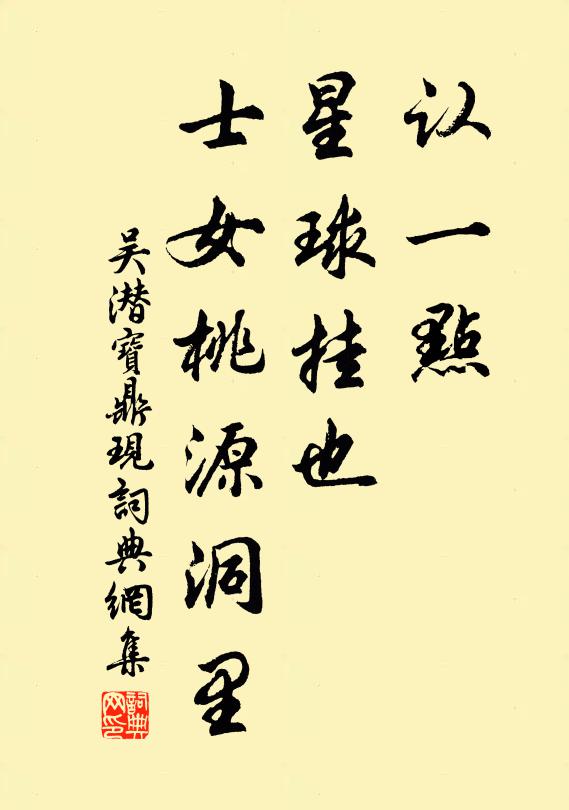 认一點
星球挂也
士女桃源洞里
吴潜寶鼎現詞典網集
詞典網印